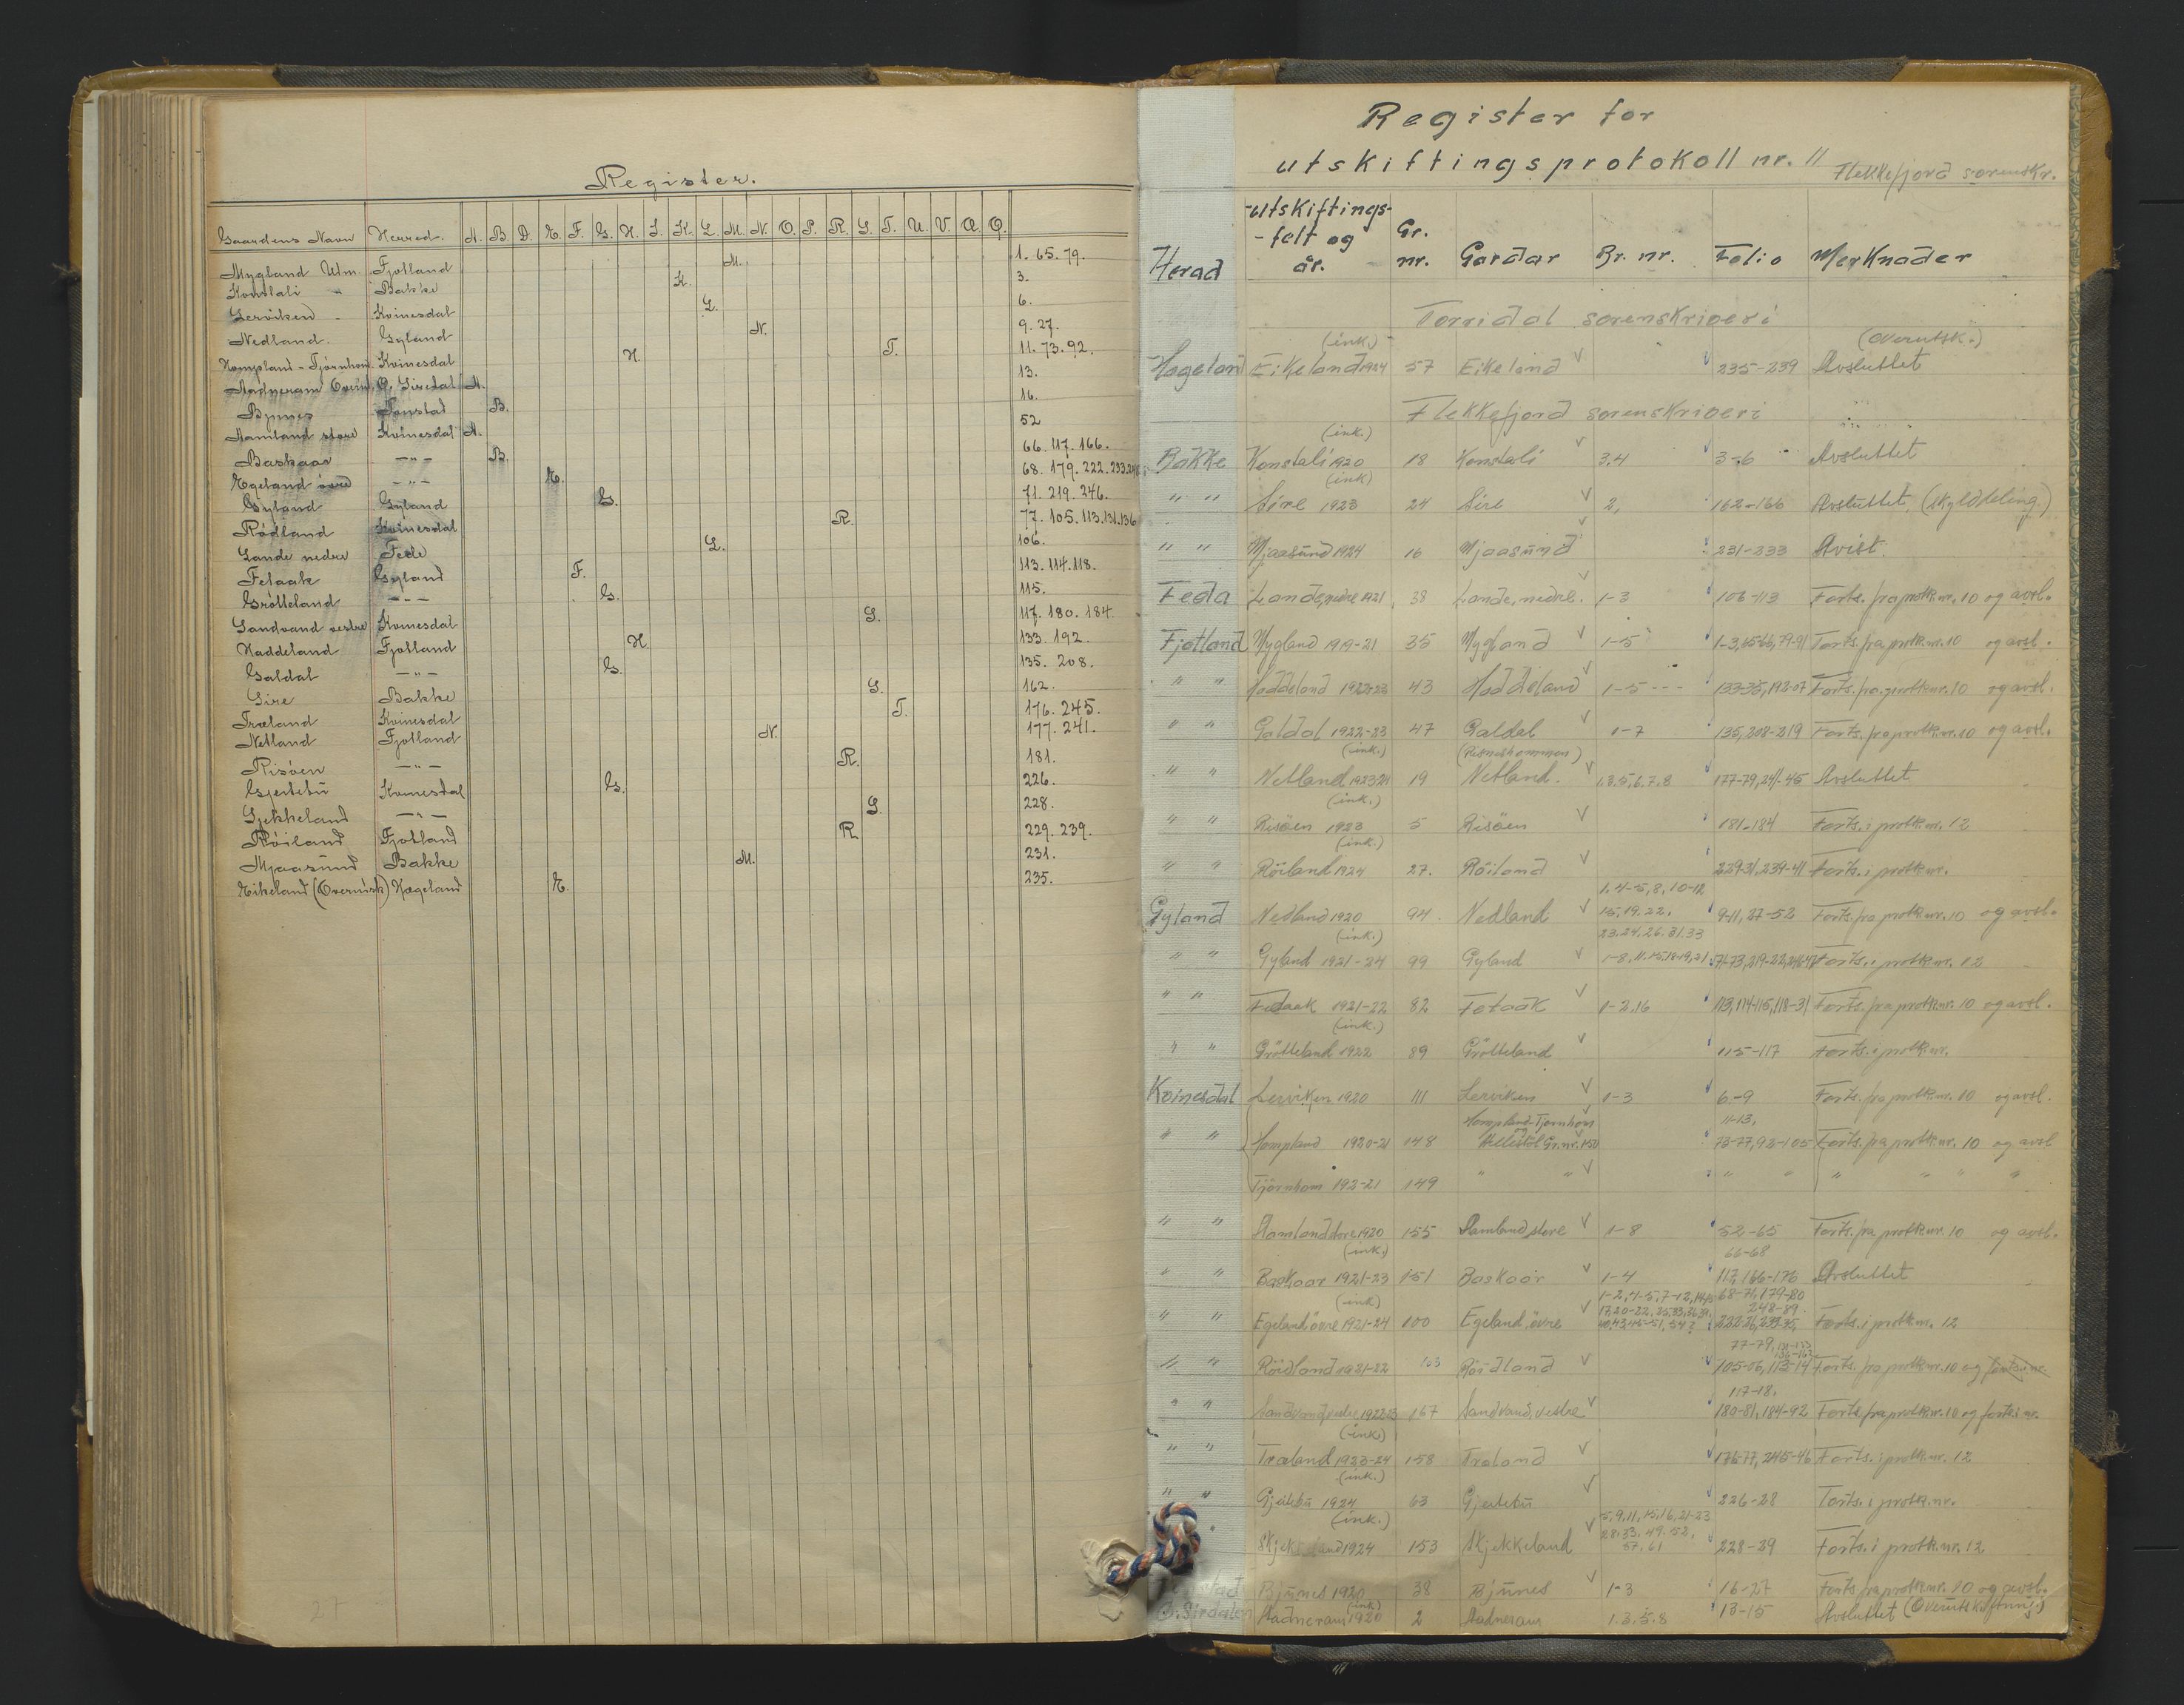 Register.
Gaardens Navn Herred. A. B. D. E. F. G. H. I. K. L. M. N. O. P. R. S. T. U. V. Æ. Ø.
Mygland Utm. Fjotland M. 1. 65. 79.
Konstali " Bakke K. 3.
Lerviken - Kvinesdal L. 6.
Nedland. Gyland N. 9. 27.
Hompland - Tjørnhom Kvinesdal H. T. 11. 73. 92.
Aadneram Overut. Ø. Siredal A. 13.
Bjunes Tonstad B. 16.
Aamland store Kvinesdal A. 52
Baskaar -"- B. 66. 117. 166.
Egeland övre -"- E. 68. 179. 222. 233. 248
Gyland Gyland G. 71. 219. 246.
Rödland Kvinesdal R. 77. 105. 113. 131. 136
Lande nedre Fede L. 106.
Fetaak Gyland F. 113. 114. 118.
Grötteland -"- G. 115.
Sandvand vestre Kvinesdal S. 117. 180. 184.
Haddeland Fjotland H. 133. 192.
Galdal -"- G. 135. 208.
Sire Bakke S. 162.
Træland Kvinesdal T. 176. 245.
Netland Fjotland N. 177. 241.
Risöen -"- R. 181.
Gjertebü Kvinesdal G. 226.
Sjekkeland -"- S. 228.
Röiland Fjotland R. 229. 239.
Mjaasünd Bakke M. 231.
Eikeland (Overutsk) Hægeland E. 235.
27
Register for
utskiftingsprotokoll nr. 11 Flekkefjord sorenskr.
Herad Utskiftings-felt og år. Gr. nr. Gardar Br. nr. Folio Merknader
Torridal sorenskriveri
(ink.) (Overutsk.)
Hægeland Eikeland 1924 57 Eikeland 235-239 Avsluttet
Flekkefjord sorenskriveri
(ink.)
Bakke Konstali 1920 18 Konstali 3,4 3-6 Avsluttet
(ink)
" " Sire 1923 24 Sire 2, 162-166 Avsluttet (skylddeling.)
" " Mjaasünd 1924 16 Mjaasünd 231-233 Avist.
Feda Lande, nedre 1921 38 Lande, nedre. 1-3 106-113 Forts. fra protk.nr. 10 og avsl.
Fjotland Mygland 1919-21 35 Mygland 1-5 1-3, 65-66, 79-91 Forts. fra protk.nr. 10 og avsl.
" " Haddeland 1922-23 43 Haddeland 1-5 --- 133-35, 192-07 Forts. fra protk.nr. 10 og avsl.
" " Galdal 1922-23 47 Galdal 1-7 135, 208-219 Forts. fra protk.nr. 10 og avsl.
(ink.)
" " Netland 1923-24 19 Netland. 1.3.5,6.7.8 177-79, 241-45 Avsluttet
(ink.)
" " Risöen 1923 5 Risöen 181-184 Forts. i protk.nr. 12
(ink.)
" " Röiland 1924 27. Röiland 229-31, 239-41 Forts. i protk.nr.
1. 4-5, 8, 10-12
Gyland Nedland 1920 94. Nedland 15. 19. 22. 9-11, 27-52 Forts. fra protk.nr. 10 og avsl.
(ink.) 23. 24. 26. 31. 33
" " Gyland 1921-24 99 Gyland 71-73, 219-22, 246-48 Forts. i protk.nr. 12
" " Fetaak 1921-22 82 Fetaak 1-3,16 113, 114-115, 118-31 Forts. fra protk.nr. 10 og avsl.
(ink.)
" " Grötteland 1922 89 Grötteland 115-117 Forts. i protk.nr.
Kvinesdal Lerviken 1920 111 Lerviken 1-3 6-9 Forts. fra protk.nr. 10 og avsl.
Hompland-Tjørnhom 11-13,
" " Hompland 1920-21 148 Gr.nr. 150 73-77, 92-105 Forts. fra protk.nr. 10 og avsl
Tjörnhom 192-21 149 " " " " " " " "
" " Aamland store 1920 155 Aamland store 1-8 52-65 Forts. fra protk.nr. 10 og avsl.
(ink.) 66-68
" " Baskaar 1921-23 151 Baskaar 1-4 117, 166-176 Avsluttet
(ink) 68-71, 179-80
248-89.
" " Egeland övre 1921-24 100 Egeland, övre Forts. i protk.nr. 12
" " Röidland 1921-22 163 Röidland 105-06, 113-14 Forts. fra protk.nr. 10 og forts. i nr.
117-18.
" " Sandvand, vestre 1922-23 167 Sandvand, vestre 180-81, 184-92 Forts. fra protk.nr. 10 og forts. i nr.
(ink.)
" " Træland 1923-24 158 Træland 176-77, 245-46 Forts. i protk.nr. 12
(ink.)
" " Gjertebü 1924 63 Gjertebü 226-28 Forts. i protk.nr.
(ink.) 5, 9, 11, 15, 16, 21-23
28. 33. 49. 52.
" Skjekkeland 1924 153 Skjekkeland 57. 61 228-29 Forts. i protk.nr. 12
Bjünes 1920 38 Bjünes 1-3 16-27 Forts. fra protk.nr. 10 og avsl.
(ink)
Ø. Sirdalen Aadneram 1920 2 Aadneram 1. 3. 5. 8 13-15 Avsluttet (Overutskiftning)